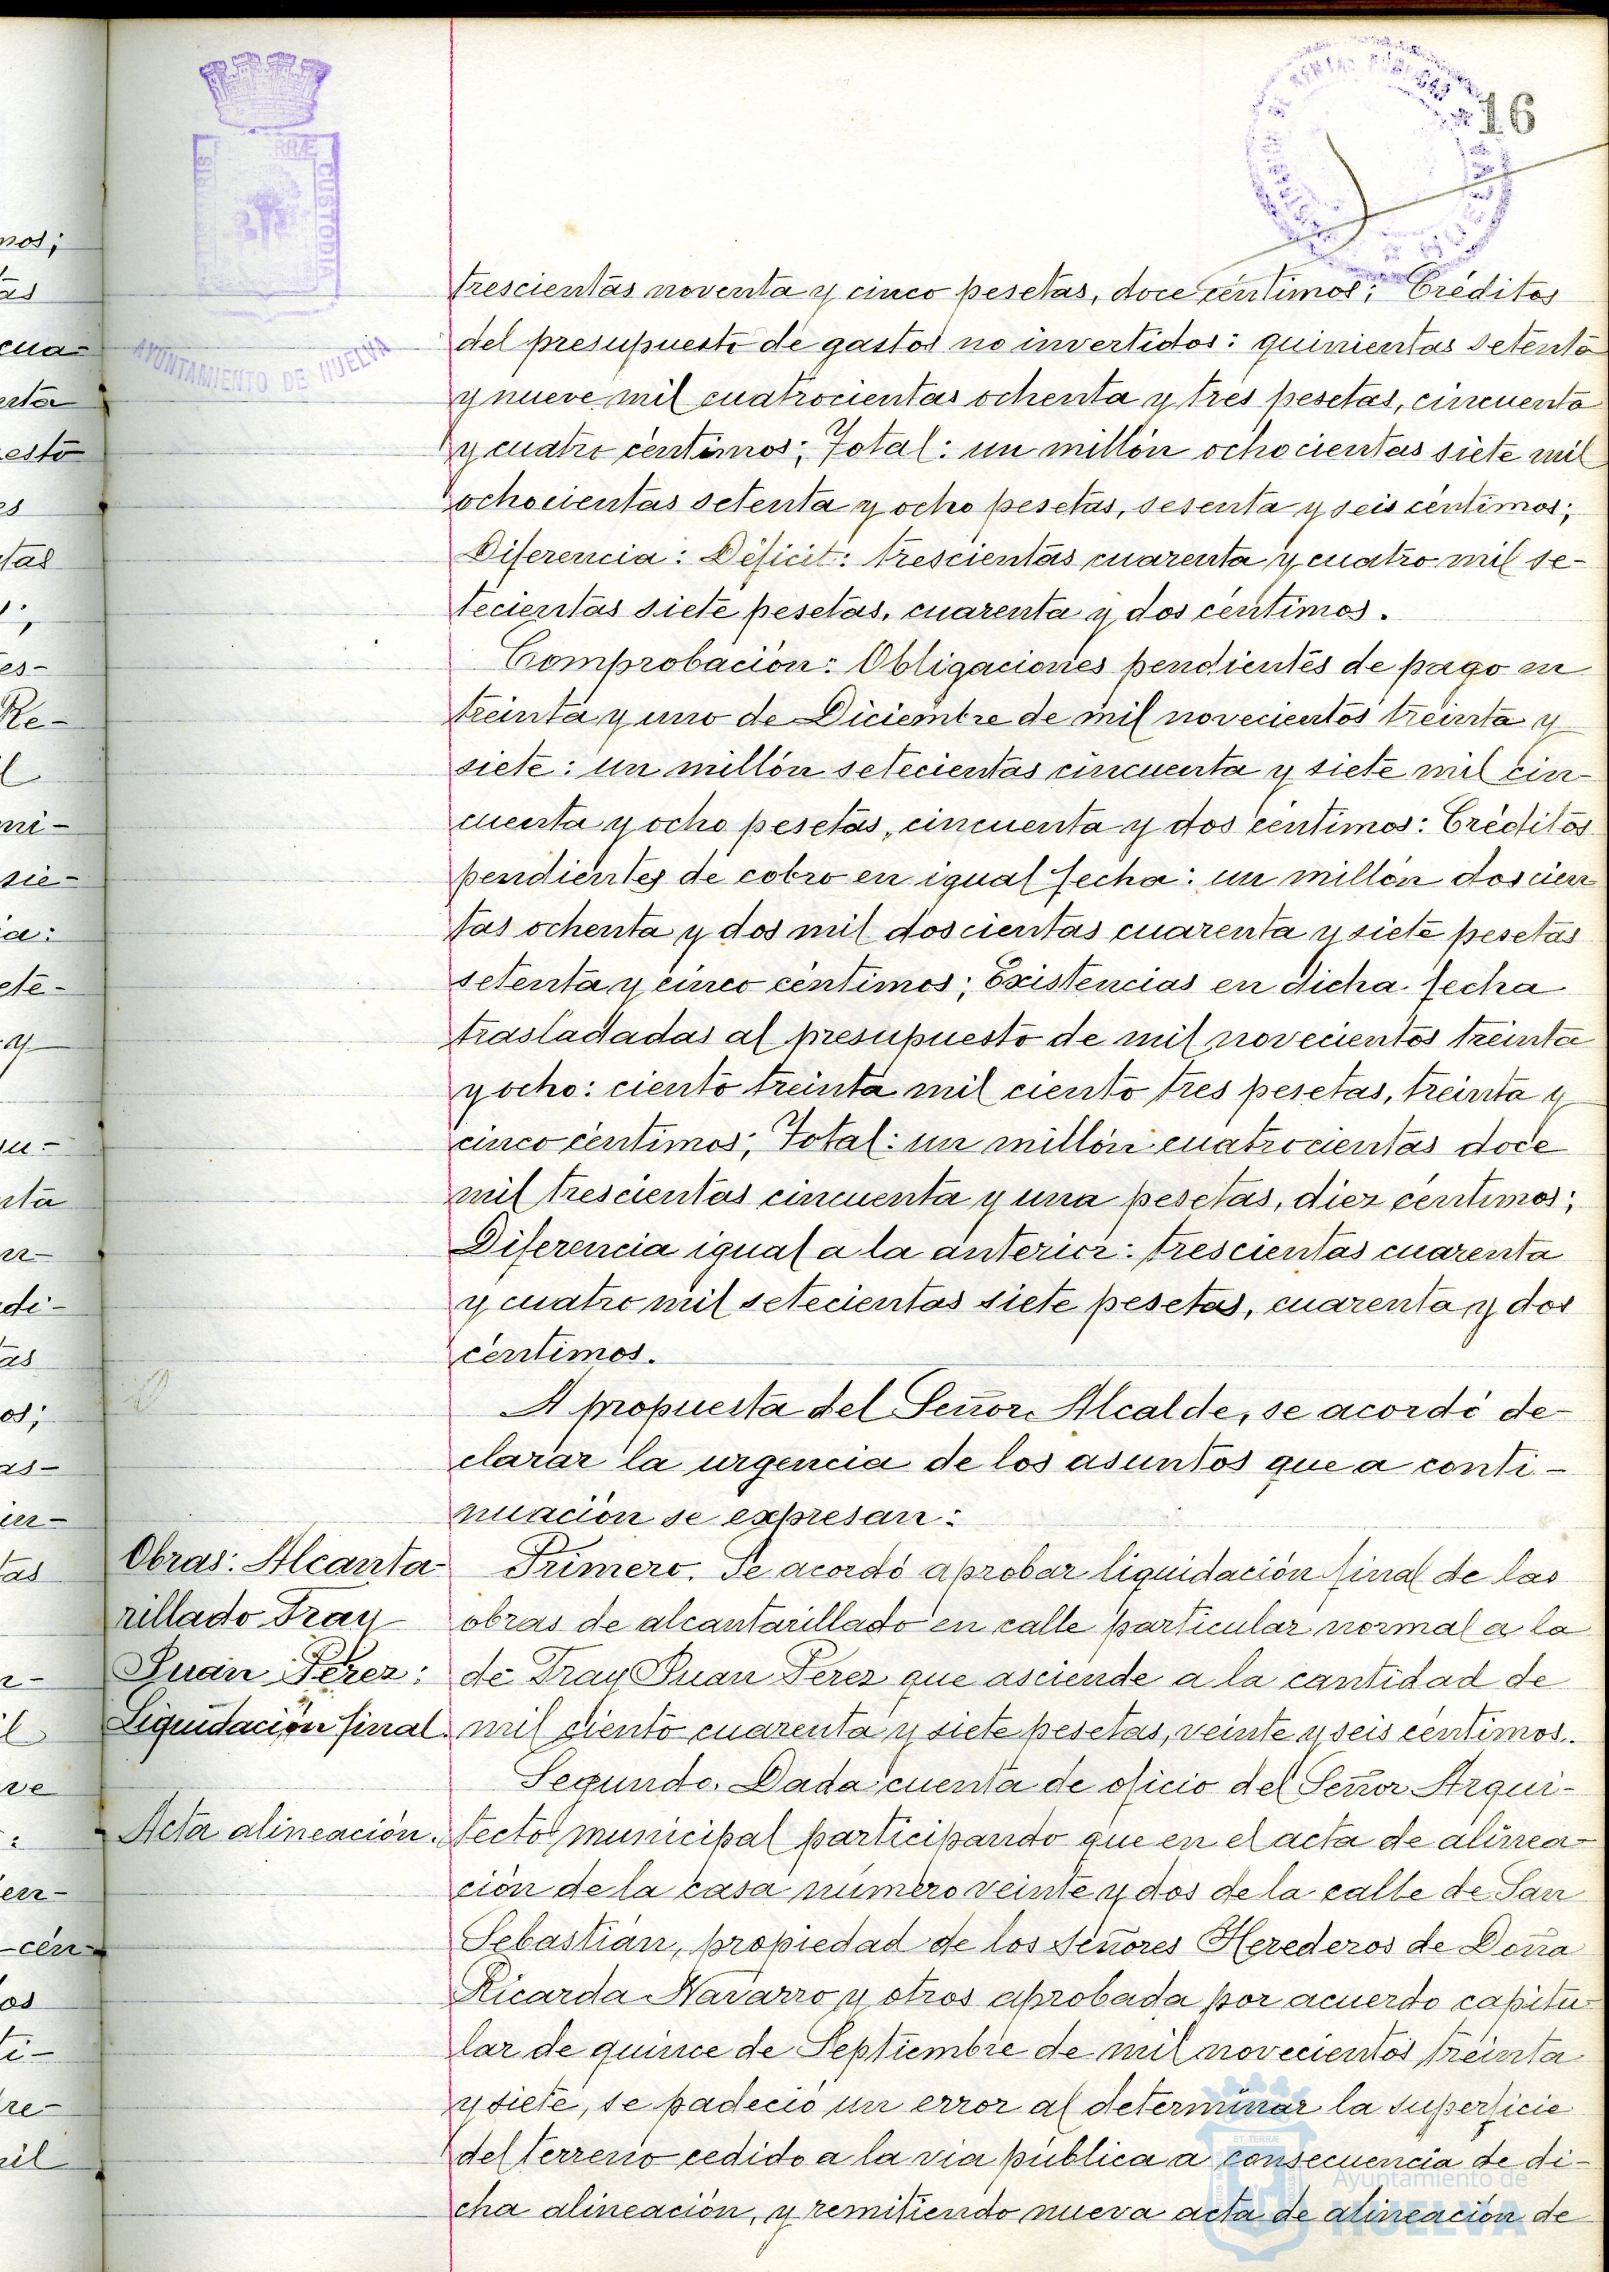 16
AYUNTAMIENTO DE HUELVA
CUSTODIA
trescientas noventa y cinco pesetas, doce céntimos; Créditos
del presupuesto de gastos no invertidos: quinientas setenta
y nueve mil cuatrocientas ochenta y tres pesetas, cincuenta
y cuatro céntimos; Total: un millón ochocientas siete mil
ochocientas setenta y ocho pesetas, sesenta y seis céntimos;
Diferencia: Déficit: trescientas cuarenta y cuatro mil se-
tecientas siete pesetas, cuarenta y dos céntimos.
Comprobación: Obligaciones pendientes de pago en
treinta y uno de Diciembre de mil novecientos treinta y
siete: un millón setecientas cincuenta y siete mil cin-
cuenta y ocho pesetas, cincuenta y dos céntimos: Créditos
pendientes de cobro en igual fecha: un millón doscien
tas ochenta y dos mil doscientas cuarenta y siete pesetas
setenta y cinco céntimos; Existencias en dicha fecha
trasladadas al presupuesto de mil novecientos treinta
y ocho: ciento treinta mil ciento tres pesetas, treinta y
cinco céntimos; Total: un millón cuatrocientas doce
mil trescientas cincuenta y una pesetas, diez céntimos;
Diferencia igual a la anterior: trescientas cuarenta
y cuatro mil setecientas siete pesetas, cuarenta y dos
céntimos.
A propuesta del Señor Alcalde, se acordó de-
clarar la urgencia de los asuntos que a conti-
nuación se expresan:
Obras: Alcanta-
rillado Fray
Juan Pérez:
Liquidación final.
Primero. Se acordó aprobar liquidación final de las
obras de alcantarillado en calle particular normal a la
de Fray Juan Perez que asciende a la cantidad de
mil ciento cuarenta y siete pesetas, veinte y seis céntimos.
Acta alineación.
Segundo. Dada cuenta de oficio del Señor Arqui-
tecto municipal participando que en el acta de alinea-
ción de la casa número veinte y dos de la calle de San
Sebastián, propiedad de los Señores Herederos de Doña
Ricarda Navarro y otros aprobada por acuerdo capitu-
lar de quince de Septiembre de mil novecientos treinta
y siete, se padeció un error al determinar la superficie
del terreno cedido a la vía pública a consecuencia de di-
cha alineación, y remitiendo nueva acta de alineación de
Ayuntamiento de
HUELVA